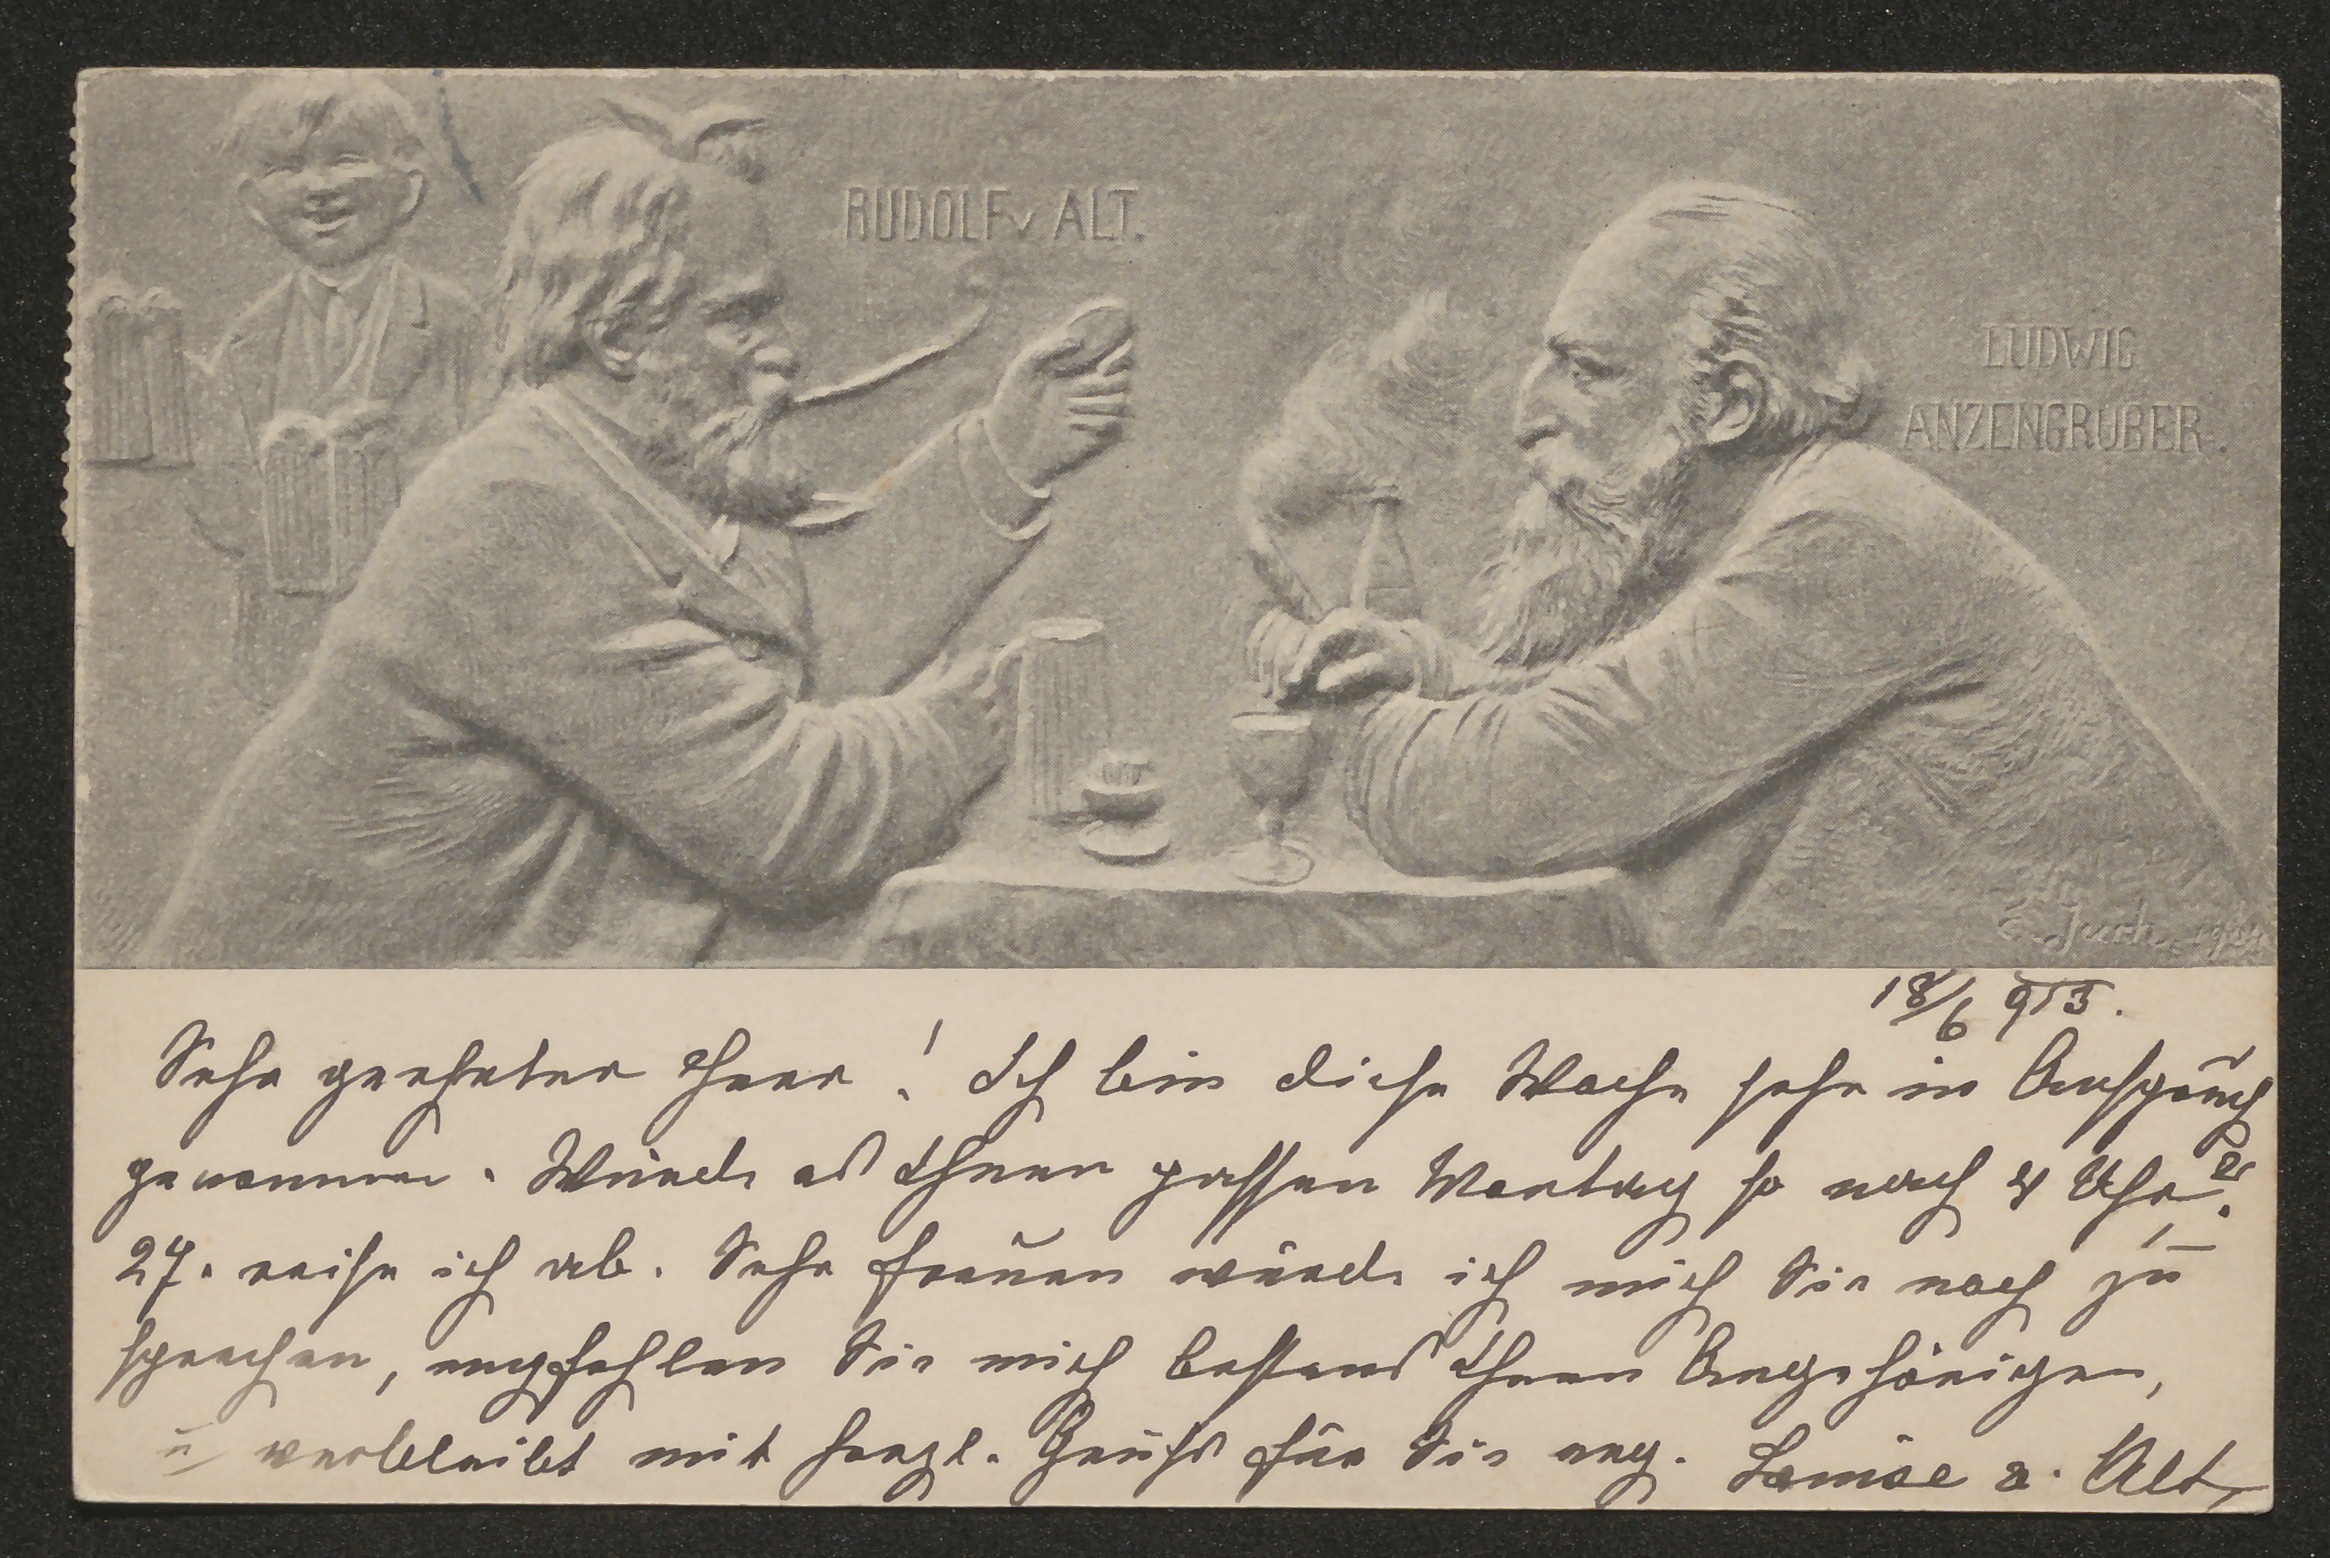 RUDOLF v ALT.
LUDWIG
ANZENGRUBER.
18/6 913.
Sehr geehrter Herr! Ich bin diese Woche sehr in Anspruch
genommen. Würde es Ihnen passen Montag so nach 4 Uhr?
27. reise ich ab. Sehr freuen würde ich mich Sie noch zu
sprechen, empfehlen Sie mich bestens Ihren Angehörigen,
u verbleibt mit herzl. Gruß für Sie erg. Louise v. Alt